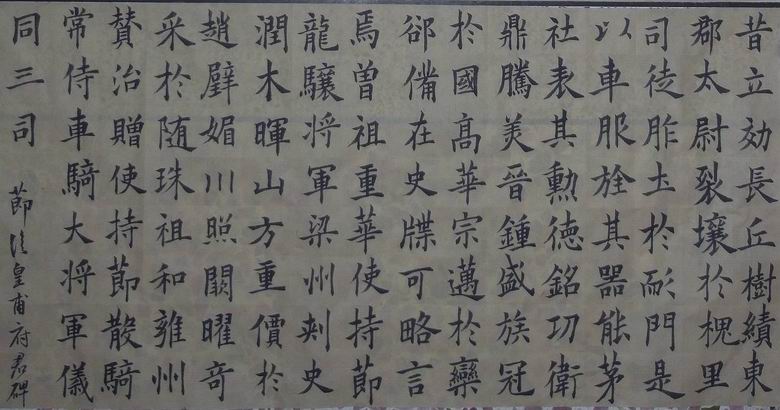 昔立効長丘樹績東
郡太尉裂壤於槐里
司徒胙土於耏門是
以車服旌其器能茅
社表其勲德銘功衛
鼎騰美晉鍾盛族冠
於國高華宗邁於欒
郤備在史牒可略言
焉曽祖重華使持節
龍驤将軍梁州刾史
潤木暉山方重價於
趙璧媚川照闕曜奇
采於随珠祖和雍州
賛治贈使持節散騎
常侍車騎大将軍儀
同三司
節臨皇甫府君碑